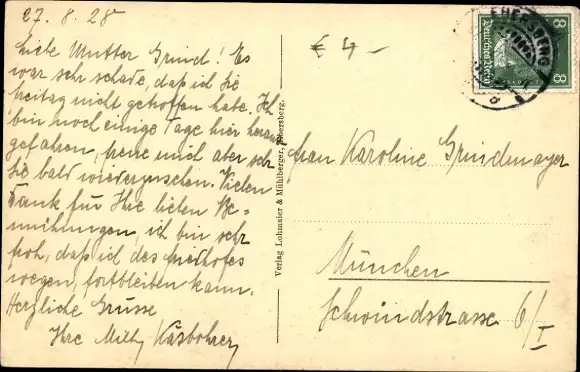 27. 8. 28
Liebe Mutter Grind! Es
war sehr schade, daß ich Sie
heitag nicht getroffen habe. Ich
bin noch einige Tage hier heraus
gefahren, freue mich aber sehr
Sie bald wiederzusehen. Vielen
Dank für Ihre lieben Be=
mühungen, ich bin sehr
froh, daß ich des
wegen, fortbleiben kann.
Herzliche Grüsse
Ihre Milly Käsbohrer
Verlag Lohmaier & Mühlberger, Ebersberg.
€ 4 -
EBERSBERG
Deutsches Reich
8 8
Frau Karoline Grindmayer
München
Schwindstrasse 6/I